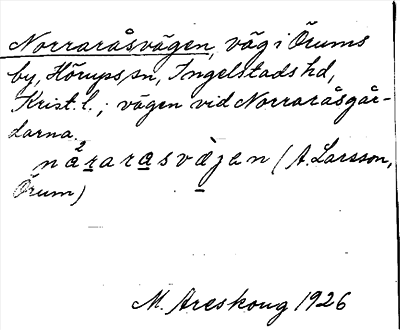 Norraråsvägen, väg i Örums
by, Hörups sn, Ingelstads hd,
Krist. l.; vägen vid Norraråsgår-
darna.
nå²raraasvä̀gen (A. Larsson,
Örum)
M. Areskoug 1926